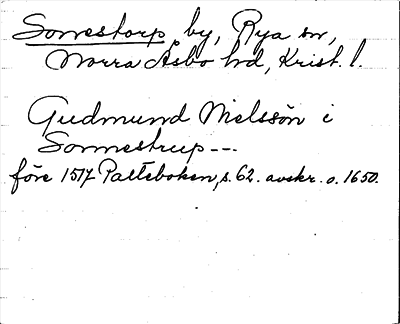 Sonnestorp by, Rya sn,
Norra Åsbo hd, Krist. l.
Gudmund Nielssön i
Sonnestrup---
före 1517 Palteboken, s. 62. avskr. o. 1650.